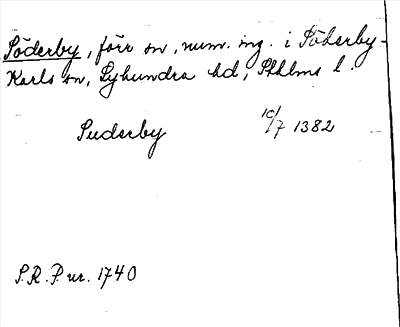 Söderby, förr sn, num. ing. i Söderby-
Karls sn, Lyhundra hd, Sthlms l.
Suderby 10/7 1382
S.R.P. nr. 1740